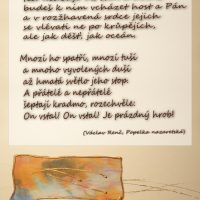 budeš k nim vcházet host a Pán
a v rozžhavená srdce jejich
se vlévati ne po krůpějích,
ale jak déšť. jak oceán.
Mnozí ho spatří, mnozí tuší
a mnoho vyvolených duší
až hmatá světlo jeho stop.
A přátelé a nepřátelé
šeptají kradmo, rozechvěle:
On vstal! On vstal! Je prázdný hrob!
(Václav Renč, Popelka nazaretská)